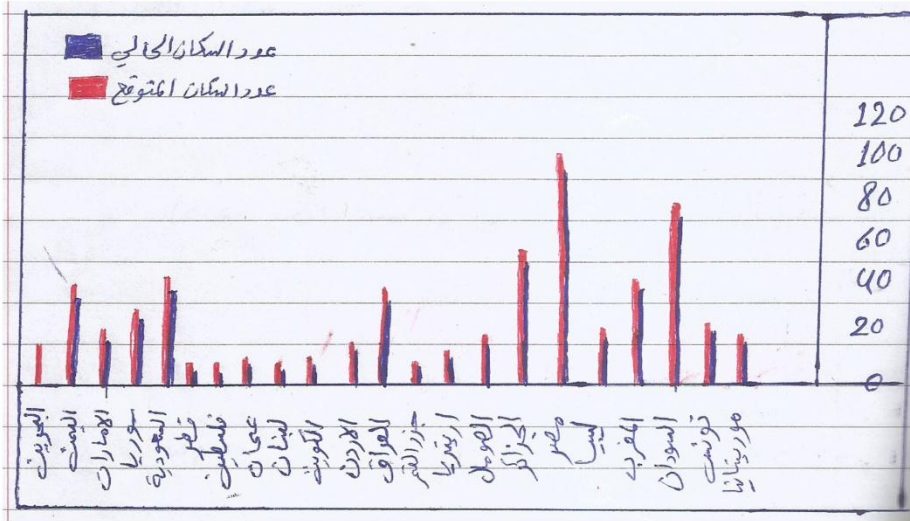 عدد السكان الحالي
عدد السكان المتوقع
120
100
80
60
40
20
0
البحرين
اليمن
الامارات
سوريا
السعودية
قطر
فلسطين
عمان
لبنان
الكويت
الاردن
العراق
جزر القمر
اريتريا
الصومال
الجزائر
مصر
ليبيا
المغرب
السودان
تونس
موريتانيا